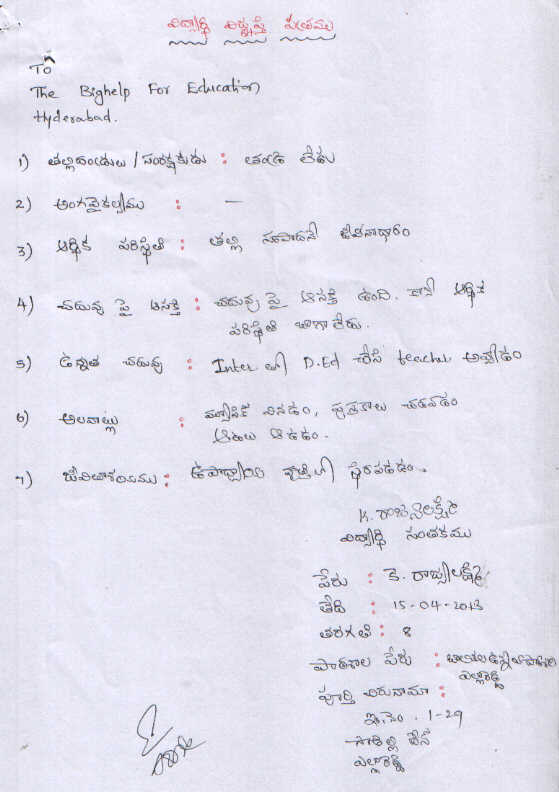 విద్యార్థి విజ్ఞప్తి పత్రము
To
The Bighelp For Education
Hyderabad.
1) తల్లిదండ్రులు / సంరక్షకుడు : తండ్రి లేడు
2) అంగవైకల్యము : —
3) ఆర్థిక పరిస్థితి : తల్లి సంపాదనే జీవనాధారం
4) చదువు పై ఆసక్తి : చదువు పై ఆసక్తి ఉంది. కానీ ఆర్థిక
పరిస్థితి బాగాలేదు.
5) ఉన్నత చదువు : Inter లో D.Ed చేసి teacher అవ్వడం
6) అలవాట్లు : మ్యూజిక్ వినడం, పుస్తకాలు చదవడం
ఆటలు ఆడడం.
7) జీవితాశయము : ఉపాధ్యాయ వృత్తిలో స్థిరపడడం.
K. రాజ్యలక్ష్మి
విద్యార్థి సంతకము
పేరు : కె. రాజ్యలక్ష్మి
తేది : 15-04-2013
తరగతి : 8
పాఠశాల పేరు :
పూర్తి చిరునామా :
ఇ.నెం. 1-29